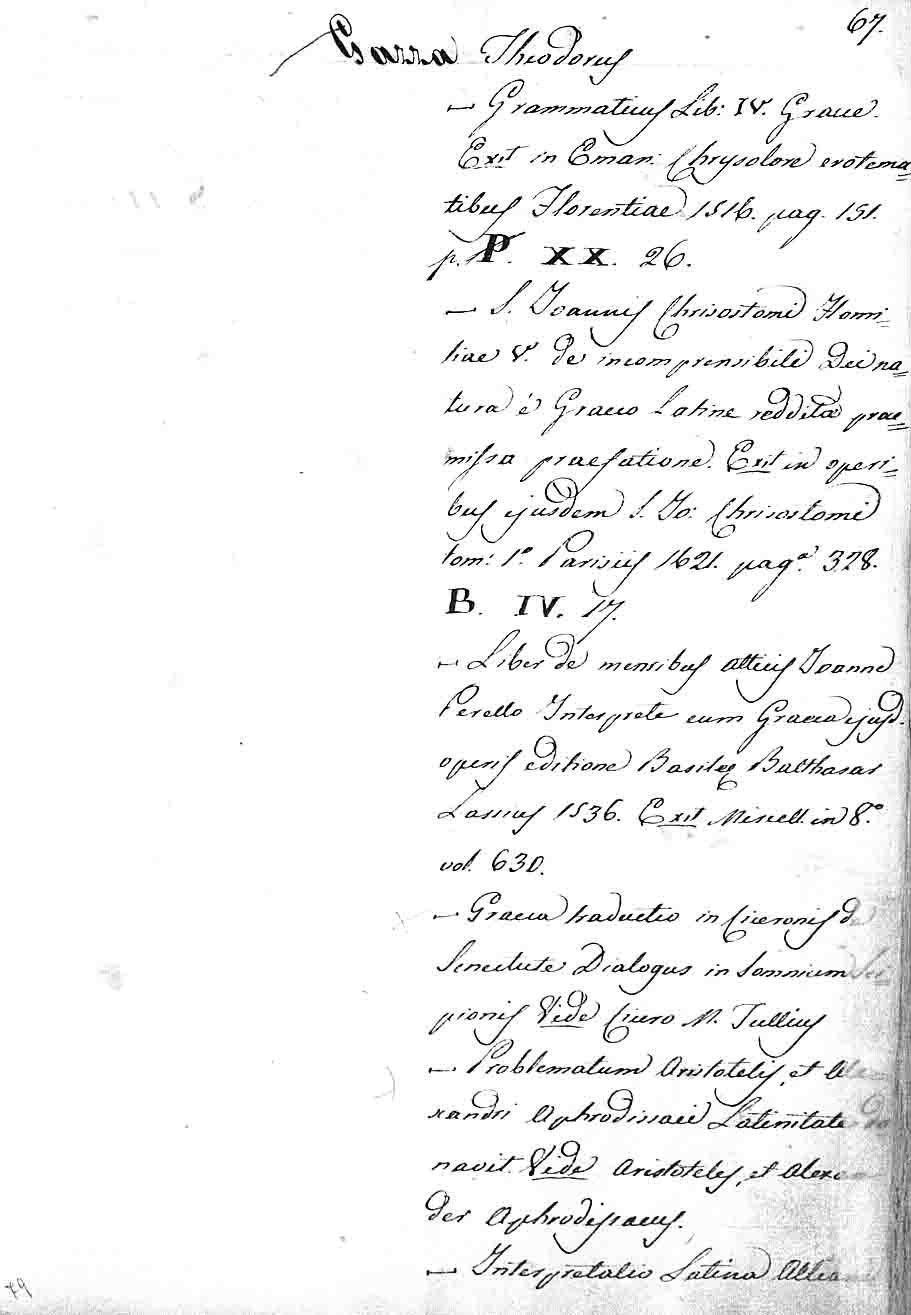 67.
Gazza Theodorus
— Grammaticus Lib: IV. Graece.
Exit in Eman: Chrysolore erotema=
tibus Florentiae 1516. pag. 151.
p. P. XX. 26.
— S. Joannis Chrisostomi Homi=
liae V. de incomprensibili Dei na=
tura è Graeco Latine reddita prae=
missa praefatione. Exit in operi=
bus ejusdem S. Jo: Chrisostomi
tom: 1º Parisiis 1621. pagª 328.
B. IV. 17.
— Liber de mensibus atticis Joanne
Perello Interprete cum Graeca ejusd.
operis editione Basileę Balthasar
Lasius 1536. Exit Miscell. in 8.º
vol. 630.
— Graeca traductio in Ciceronis de
Senectute Dialogus in somnium Sci=
pionis Vide Cicero M. Tullius
— Problematum Aristotelis, et Ale=
xandri Aphrodissaei Latinitate do
navit. Vide Aristoteles, et Alexan
der Aphrodissaeus.
— Interpretatio Latina
79